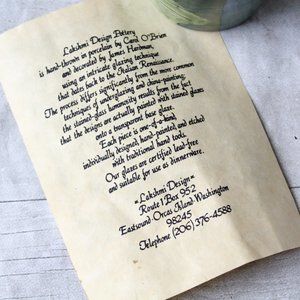 Lakshmi Design Pottery
is hand-thrown in porcelain by Carol O'Brien
and decorated by James Hardman,
using an intricate glazing technique
that dates back to the Italian Renaissance.
The process differs significantly from the more common
technique of underglazing and china-painting;
the stained-glass luminosity results from the fact
that the designs are actually painted with stained glazes
onto a transparent base glaze.
Each piece is one-of-a-kind
individually designed, hand-painted, and etched
with traditional hand tools.
Our glazes are certified lead-free
and suitable for use as dinnerware.
~Lakshmi Design~
Route 1 Box 952
Eastsound · Orcas Island · Washington
98245
Telephone (206) 376-4588